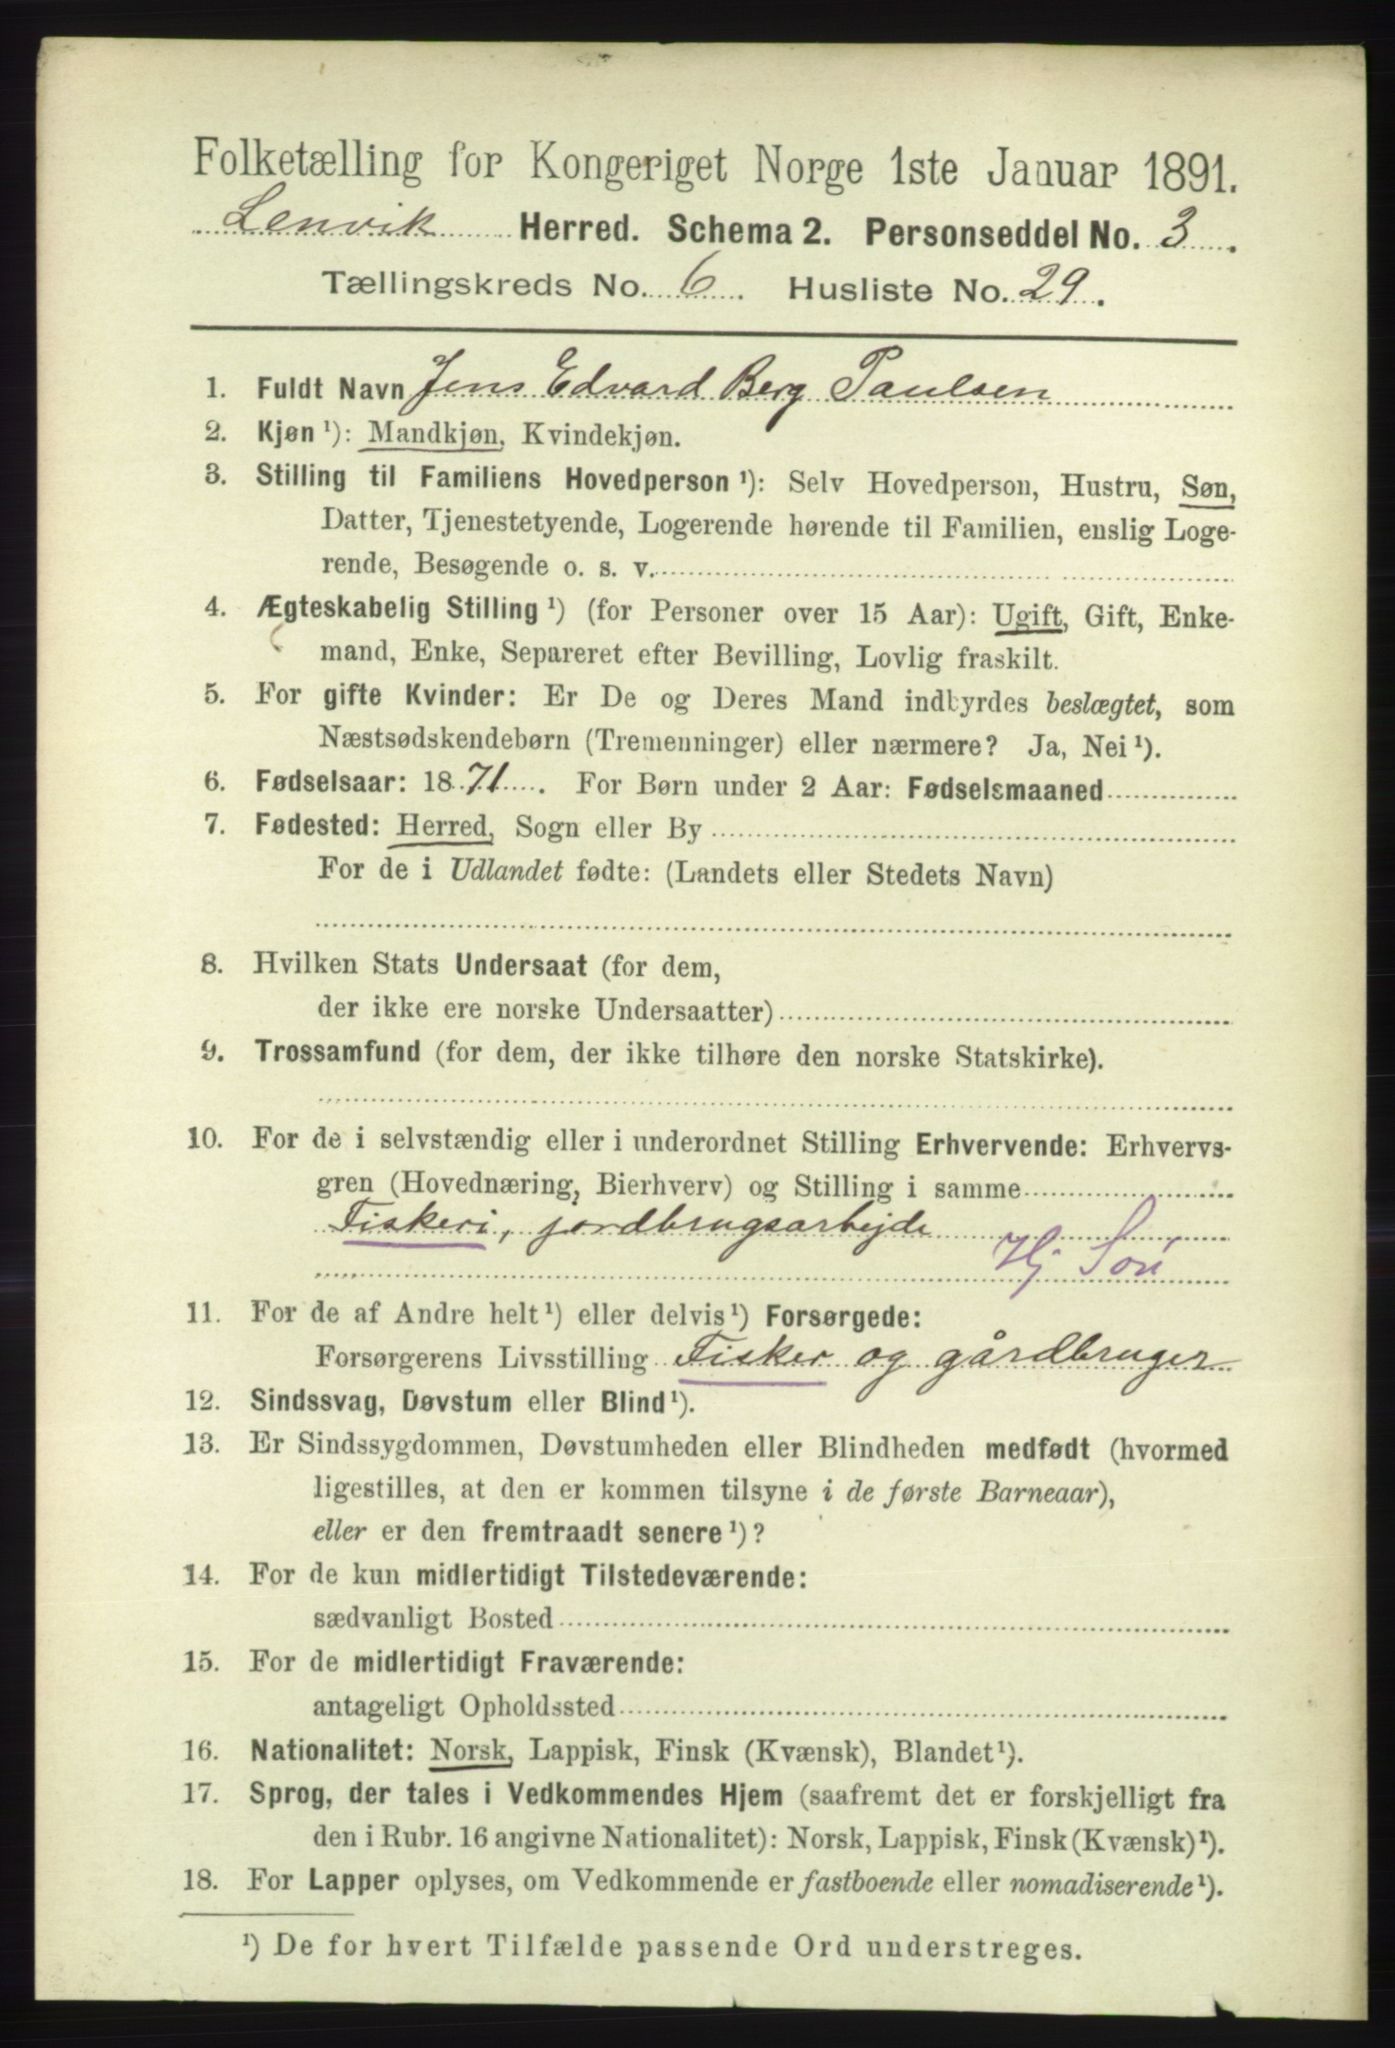 Folketælling for Kongeriget Norge 1ste Januar 1891.
Lenvik Herred. Schema 2. Personseddel No. 3.
Tællingskreds No. 6. Husliste No. 29.
1. Fuldt Navn Jens Edvard Berg Paulsen
2. Kjøn ¹): Mandkjøn, Kvindekjøn.
3. Stilling til Familiens Hovedperson ¹): Selv Hovedperson, Hustru, Søn,
Datter, Tjenestetyende, Logerende hørende til Familien, enslig Loge-
rende, Besøgende o. s. v.
4. Ægteskabelig Stilling ¹) (for Personer over 15 Aar): Ugift, Gift, Enke-
mand, Enke, Separeret efter Bevilling, Lovlig fraskilt.
5. For gifte Kvinder: Er De og Deres Mand indbyrdes beslægtet, som
Næstsødskendebørn (Tremenninger) eller nærmere? Ja, Nei ¹).
6. Fødselsaar: 1871. For Børn under 2 Aar: Fødselsmaaned
7. Fødested: Herred, Sogn eller By
For de i Udlandet fødte: (Landets eller Stedets Navn)
8. Hvilken Stats Undersaat (for dem,
der ikke ere norske Undersaatter)
9. Trossamfund (for dem, der ikke tilhøre den norske Statskirke).
10. For de i selvstændig eller i underordnet Stilling Erhvervende: Erhvervs-
gren (Hovednæring, Bierhverv) og Stilling i samme
Fiskeri, jordbrugsarbejde
Hj Søn
11. For de af Andre helt ¹) eller delvis ¹) Forsørgede:
Forsørgerens Livsstilling Fisker og gårdbruger
12. Sindssvag, Døvstum eller Blind ¹).
13. Er Sindssygdommen, Døvstumheden eller Blindheden medfødt (hvormed
ligestilles, at den er kommen tilsyne i de første Barneaar),
eller er den fremtraadt senere ¹)?
14. For de kun midlertidigt Tilstedeværende:
sædvanligt Bosted
15. For de midlertidigt Fraværende:
antageligt Opholdssted
16. Nationalitet: Norsk, Lappisk, Finsk (Kvænsk), Blandet ¹).
17. Sprog, der tales i Vedkommendes Hjem (saafremt det er forskjelligt fra
den i Rubr. 16 angivne Nationalitet): Norsk, Lappisk, Finsk (Kvænsk) ¹).
18. For Lapper oplyses, om Vedkommende er fastboende eller nomadiserende ¹).
¹) De for hvert Tilfælde passende Ord understreges.